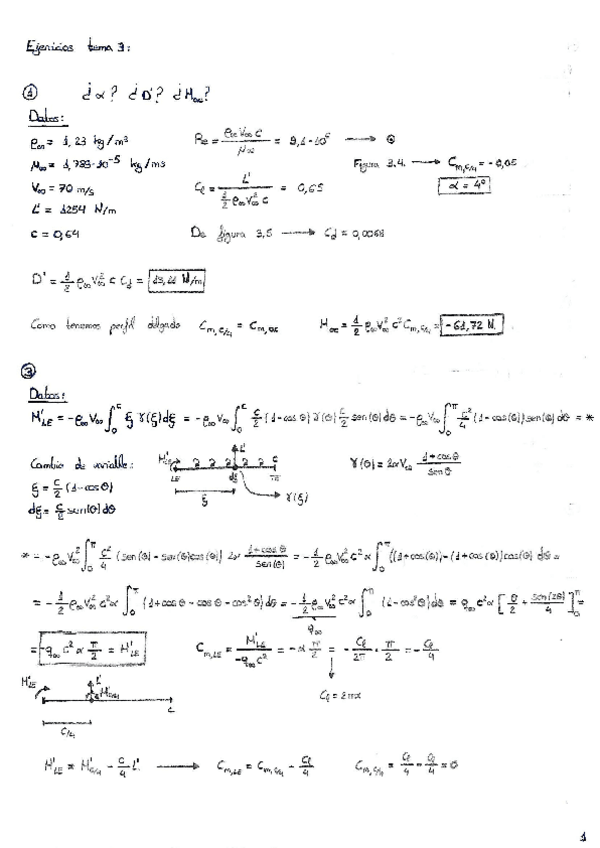 Ejercicios tema 3:
① ¿α? ¿D'? ¿M∞?
Datos:
ρ∞ = 1,23 kg/m³
Re = ρ∞ V∞ c / μ∞ = 3,1·10⁶ →
μ∞ = 1,789·10⁻⁵ kg/ms
Figura 3.4. → C_{m,c/4} = -0,05
V∞ = 70 m/s
Cl = L' / (1/2 ρ∞ V∞² c) = 0,65
α = 4°
L' = 1254 N/m
c = 0,64
De figura 3,5 → Cd = 0,0068
D' = 1/2 ρ∞ V∞² c Cd = 13,11 N/m
Como tenemos perfil delgado C_{m,c/4} = C_{m,ac} M_{ac} = 1/2 ρ∞ V∞² c² C_{m,c/4} = -61,72 N.
③
Datos:
M'_{LE} = -ρ∞ V∞ ∫₀^c ξ γ(ξ) dξ = -ρ∞ V∞ ∫₀^c c/2 (1-cosθ) γ(θ) c/2 sen(θ) dθ = -ρ∞ V∞ ∫₀^π c²/4 (1-cos(θ)) sen(θ) dθ = *
Cambio de variable:
ξ = c/2 (1-cosθ)
dξ = c/2 sen(θ) dθ
M'_{LE} L' c
LE dξ TE
ξ γ(ξ)
γ(θ) = 2αV∞ (1+cosθ)/senθ
* = -ρ∞ V∞² ∫₀^π c²/4 (sen(θ) - sen(θ)cos(θ)) 2α (1+cosθ)/sen(θ) = -1/2 ρ∞ V∞² c² α ∫₀^π ((1+cosθ)-(1+cosθ)cosθ) dθ =
= -1/2 ρ∞ V∞² c² α ∫₀^π (1+cosθ - cosθ - cos²θ) dθ = -1/2 ρ∞ V∞² c² α ∫₀^π (1-cos²θ) dθ = q∞ c² α [θ/2 + sen(2θ)/4]₀^π =
q∞
= -q∞ c² α π/2 = M'_{LE}
C_{m,LE} = M'_{LE} / -q∞ c² = -α π/2 = -Cl/2π · π/2 = -Cl/4
Cl = 2πα
M'_{LE} L' M'_{c/4} c
c/4
M'_{LE} = M'_{c/4} - c/4 L' → C_{m,LE} = C_{m,c/4} - Cl/4 C_{m,c/4} = Cl/4 - Cl/4 = 0
1